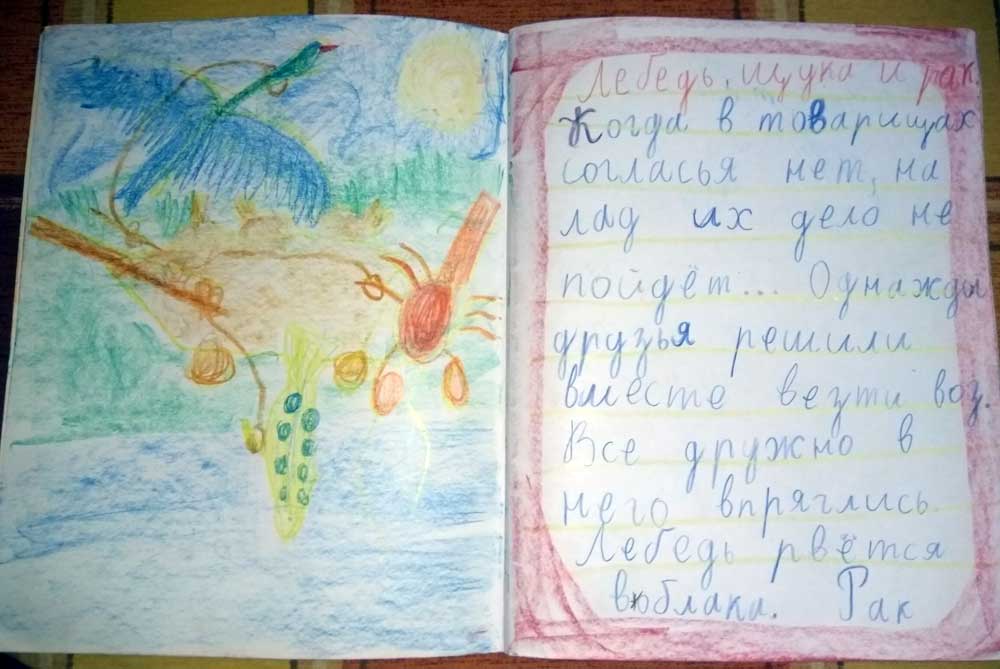 Лебедь, щука и рак.
Когда в товарищах
согласья нет, на
лад их дело не
пойдёт... Однажды
друзья решили
вместе везти воз.
Все дружно в
него впряглись.
Лебедь рвётся
в облака. Рак